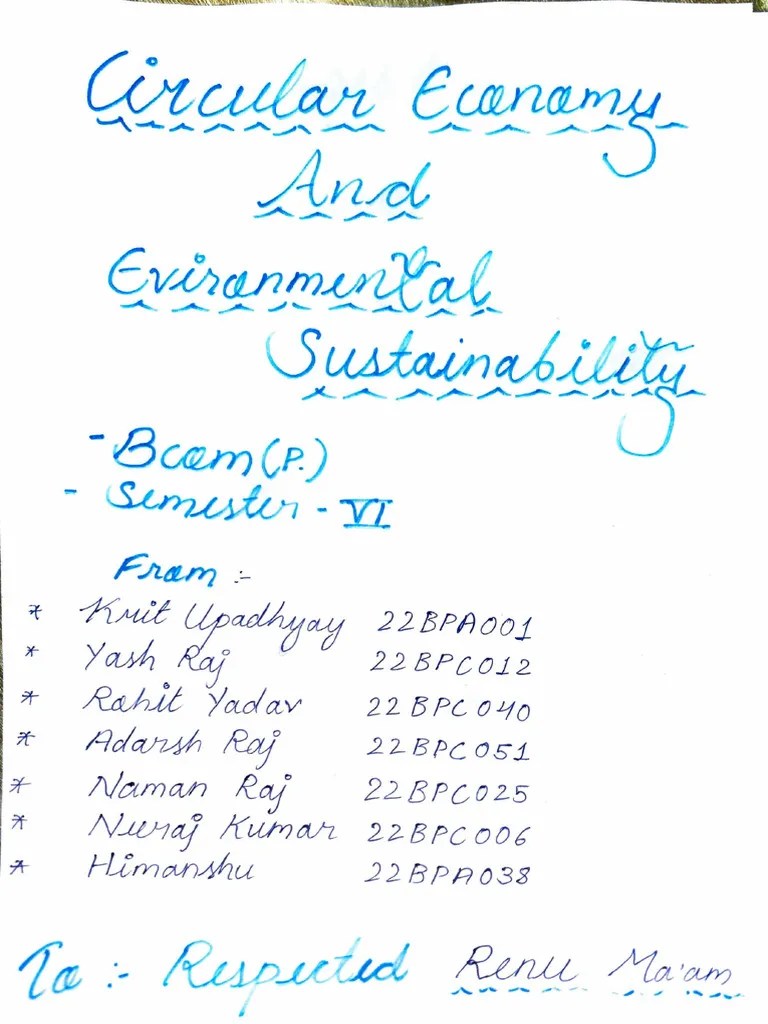 Circular Economy
And
Evironmental
Sustainability
- Bcom (P.)
- Semester - VI
From :-
* Krit Upadhyay 22BPA001
* Yash Raj 22BPC012
* Rohit Yadav 22BPC040
* Adarsh Raj 22BPC051
* Naman Raj 22BPC025
* Neeraj Kumar 22BPC006
* Himanshu 22BPA038
To :- Respected Renu Ma'am